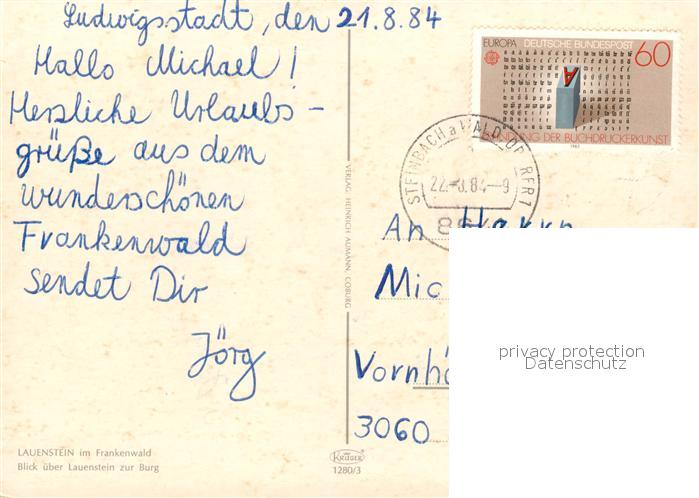 Ludwigsstadt, den 21.8.84
Hallo Michael!
Herzliche Urlaubs-
grüße aus dem
wunderschönen
Frankenwald
sendet Dir
Jörg
LAUENSTEIN im Frankenwald
Blick über Lauenstein zur Burg
VERLAG HEINRICH AUMANN, COBURG
KRÜGER
1280/3
EUROPA DEUTSCHE BUNDESPOST 60
ERFINDUNG DER BUCHDRUCKERKUNST
1983
STEINBACH a WALD
22.-8.84-9
An Herrn
Mic
Vornh
3060
privacy protection
Datenschutz